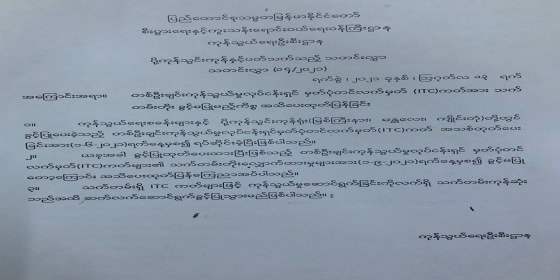 ပြည်ထောင်စုသမ္မတမြန်မာနိုင်ငံတော်
စီးပွားရေးနှင့်ကူးသန်းရောင်းဝယ်ရေးဝန်ကြီးဌာန
ကုန်သွယ်ရေးဦးစီးဌာန
ပို့ကုန်သွင်းကုန်နှင့်ပတ်သက်သည့် သတင်းလွှာ
သတင်းလွှာ (၁၅/၂၀၂၁)
ရက်စွဲ ၊ ၂၀၂၁ ခုနှစ် ၊ ဩဂုတ်လ ၁၃ ရက်
အကြောင်းအရာ။ တစ်ဦးချင်းကုန်သွယ်မှုလုပ်ငန်းရှင် မှတ်ပုံတင်လက်မှတ် (ITC)ကတ်အား သက်
တမ်းတိုး ခွင့်မပြုမည့်ကိစ္စ အသိပေးထုတ်ပြန်ခြင်း
၁။ ကုန်သွယ်ရေးစခန်းများနှင့် ပို့ကုန်သွင်းကုန်ရုံး(မြစ်ကြီးနား၊ မန္တလေး၊ ကျိုင်းတုံ)တို့တွင်
ခွင့်ပြုပေးခဲ့သည့် တစ်ဦးချင်းကုန်သွယ်မှုလုပ်ငန်းရှင်မှတ်ပုံတင်လက်မှတ်(ITC)ကတ် အသစ်ထုတ်ပေး
ခြင်းအား(၁-၆-၂၀၂၁)ရက်နေ့မှစ၍ ရပ်ဆိုင်းခဲ့ပြီးဖြစ်ပါသည်။
၂။ ယခုအခါ ခွင့်ပြုထုတ်ပေးထားပြီးဖြစ်သည့် တစ်ဦးချင်းကုန်သွယ်မှုလုပ်ငန်းရှင် မှတ်ပုံတင်
လက်မှတ်(ITC)ကတ်များ၏ သက်တမ်းတိုးလျှောက်ထားမှုများအား(၁-၉-၂၀၂၁)ရက်နေ့မှစ၍ ခွင့်မပြု
တော့ကြောင်း အသိပေးထုတ်ပြန်ကြေညာအပ်ပါသည်။
၃။ သက်တမ်းရှိ ITC ကတ်များဖြင့် ကုန်သွယ်မှုဆောင်ရွက်ခြင်းကိုလက်ရှိ သက်တမ်းကုန်ဆုံး
သည်အထိ ဆက်လက်ဆောင်ရွက်ခွင့်ပြုသွားမည်ဖြစ်ပါသည်။
ကုန်သွယ်ရေးဦးစီးဌာန